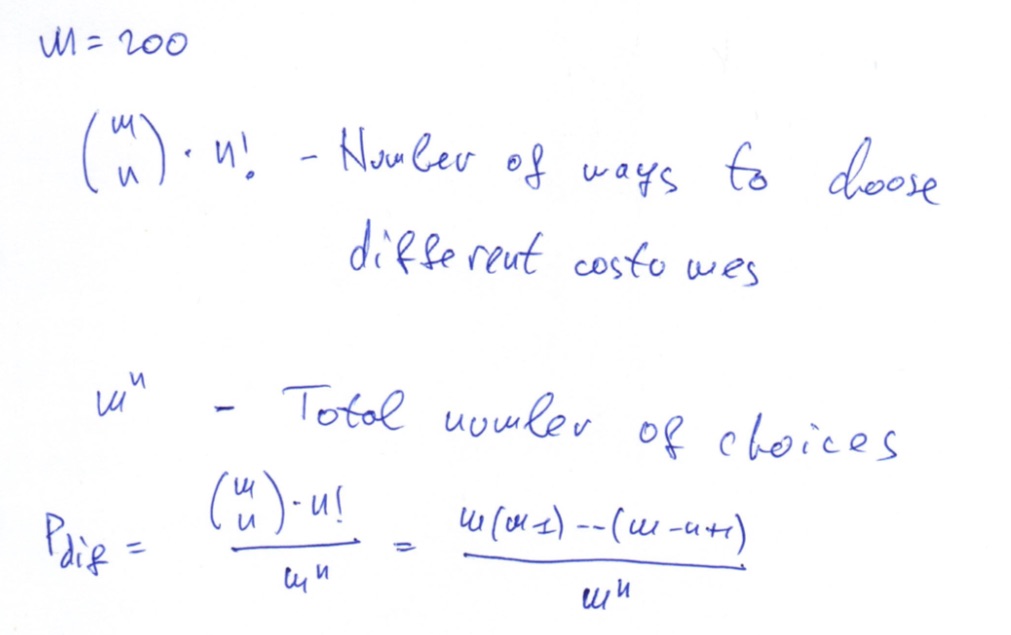 m = 200
(m n) · n! - Number of ways to choose
different costumes
mⁿ - Total number of choices
P_dif = (m n) · n! / mⁿ = m(m-1)--(m-n+1) / mⁿ